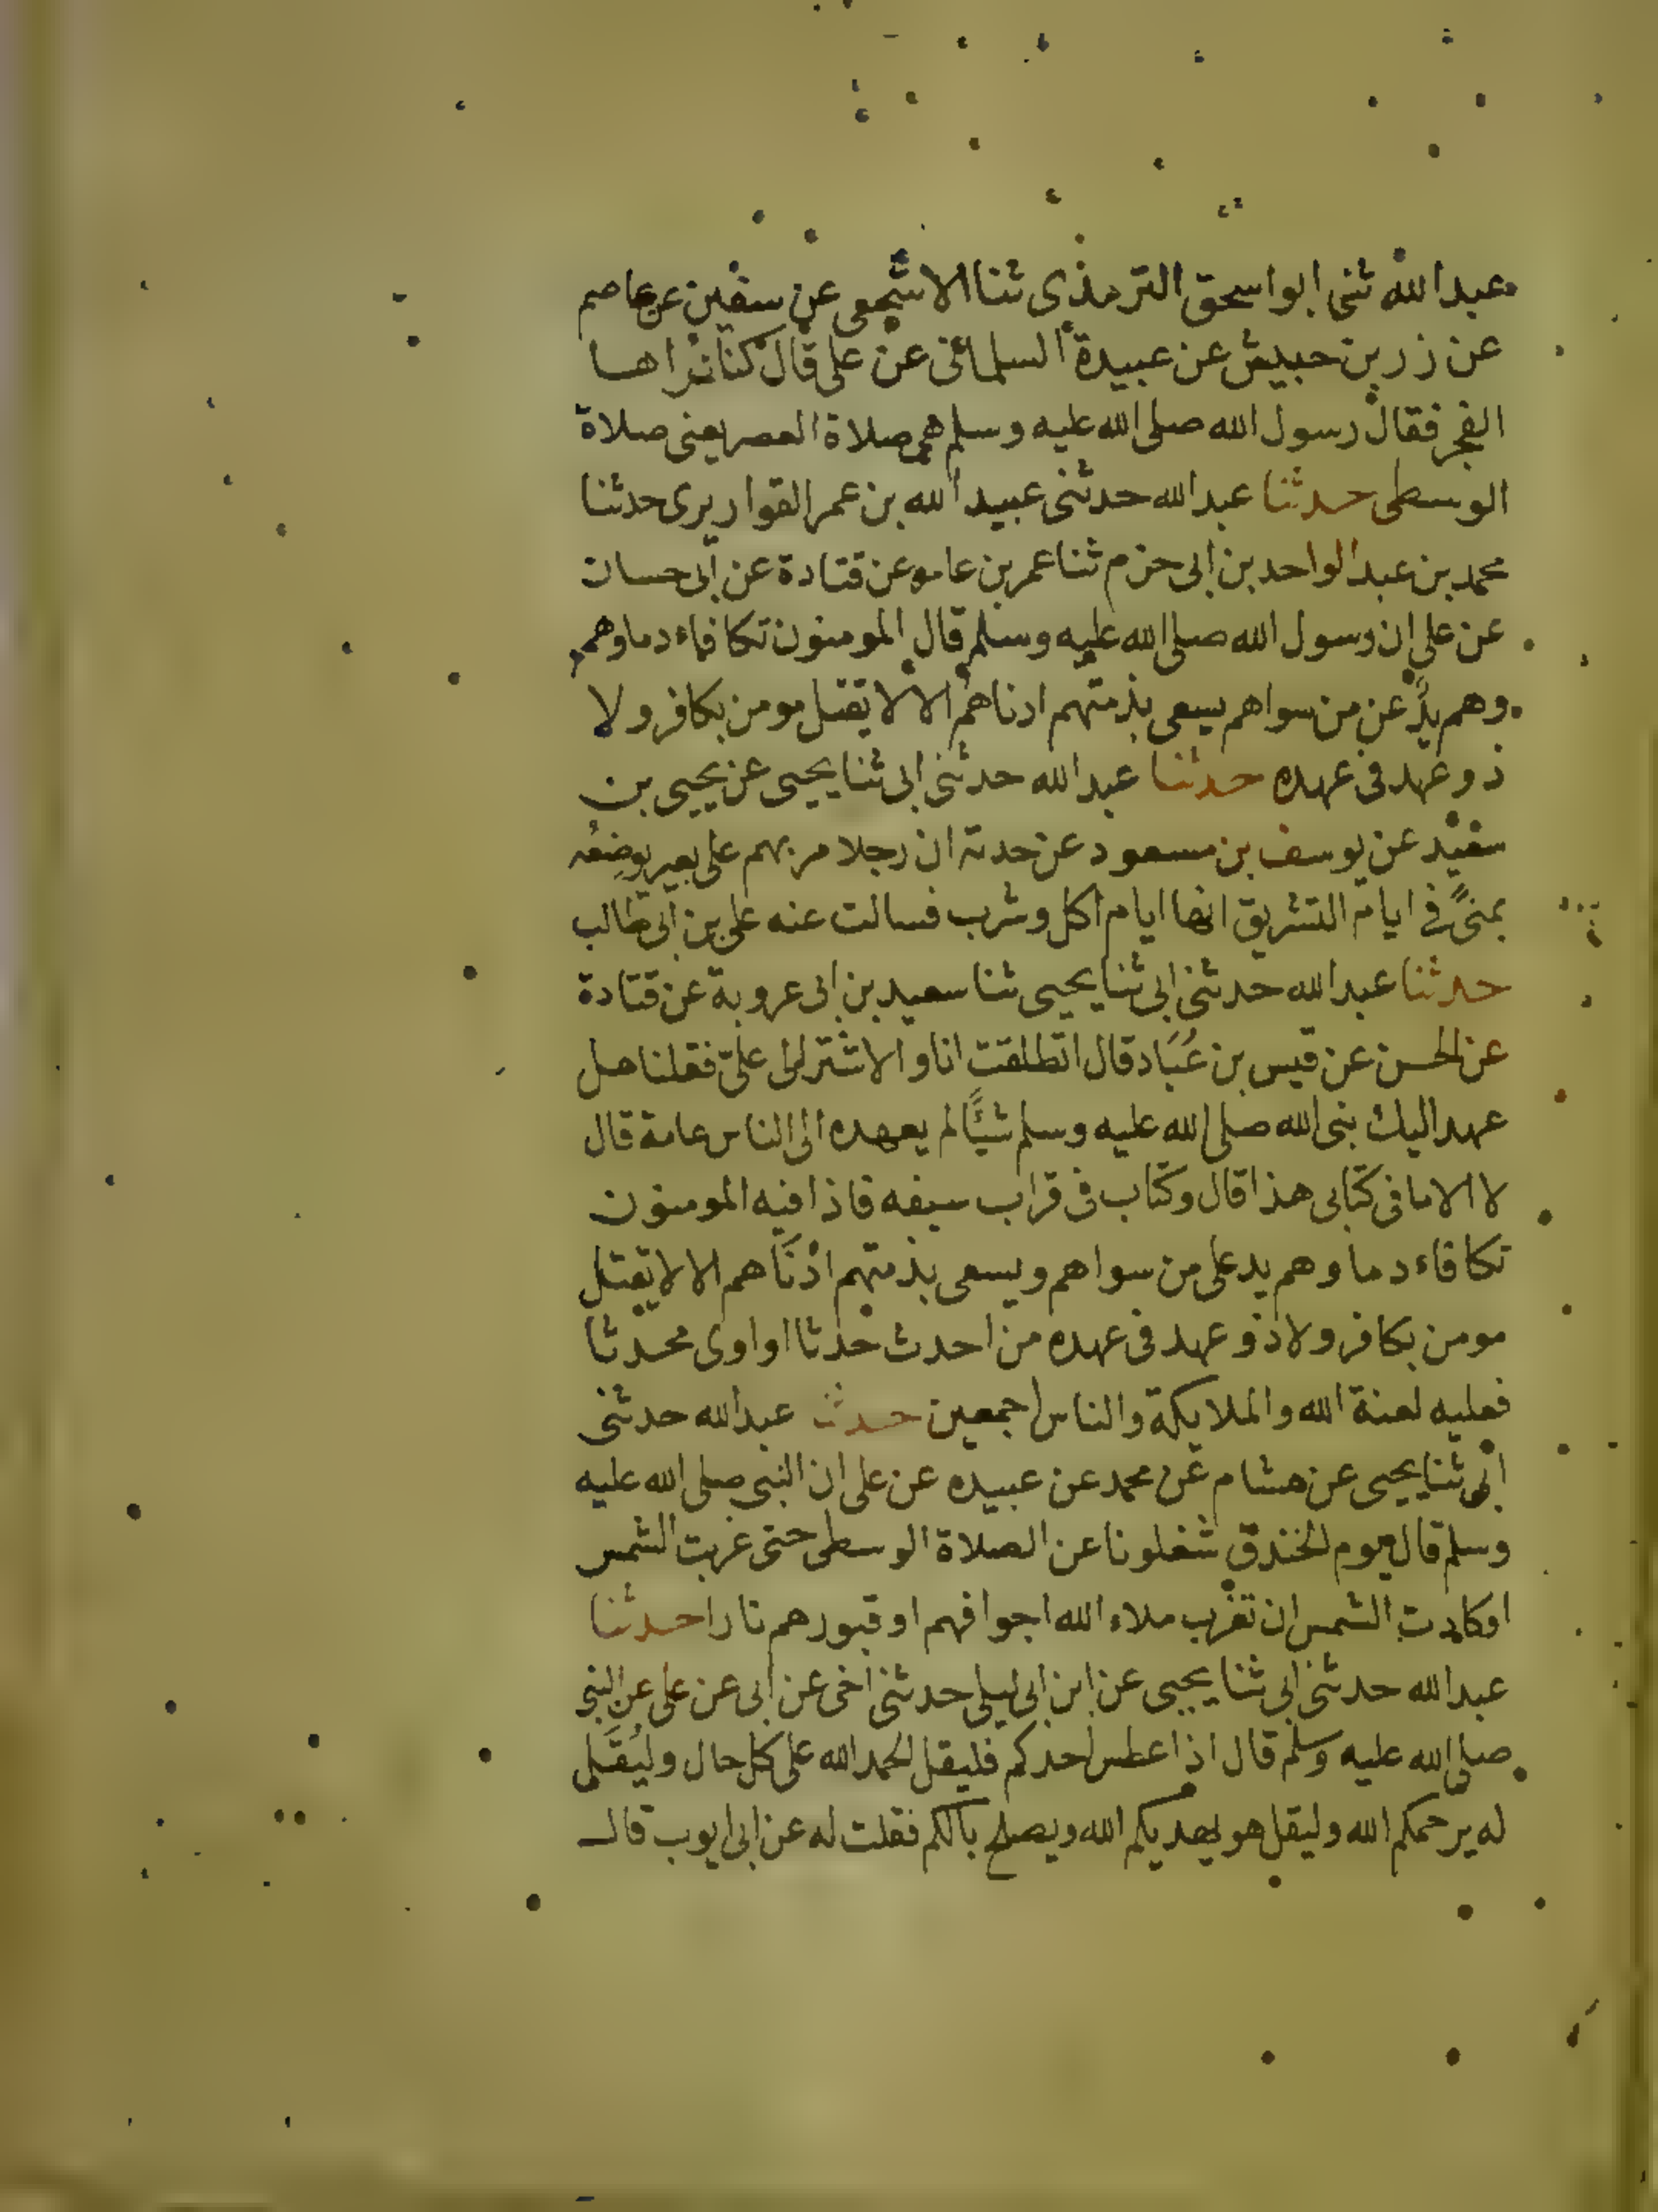 عبد الله ثنى ابو اسحق الترمذى ثنا الاشجعى عن سفين عن عاصم
عن زر بن حبيش عن عبيدة السلمانى عن على قال كنا نراها
الفجر فقال رسول الله صلى الله عليه وسلم هى صلاة العصر يعنى صلاة
الوسطى حدثنا عبد الله حدثنى عبيد الله بن عمر القواريرى حدثنا
محمد بن عبد الواحد بن ابى حزم ثنا عمر بن عامر عن قتادة عن ابى حسان
عن على ان رسول الله صلى الله عليه وسلم قال المومنون تكافاء دماوهم
وهم يدٌ عن من سواهم يسعى بذمتهم ادناهم الا لا يقتل مومن بكافر ولا
ذو عهد فى عهده حدثنا عبد الله حدثنى ابى ثنا يحيى عن يحيى بن
سعيد عن يوسف بن مسعود عن جدته ان رجلا مر بهم على بعير يوضعه
بمنىً فى ايام التشريق انها ايام اكل وشرب فسالت عنه على بن ابى طالب
حدثنا عبد الله حدثنى ابى ثنا يحيى ثنا سعيد بن ابى عروبة عن قتادة
عن الحسن عن قيس بن عُبَاد قال انطلقت انا والاشتر الى علىّ فقلنا هل
عهد اليك نبى الله صلى الله عليه وسلم شيًا لم يعهده الى الناس عامة قال
لا الا ما فى كتابى هذا قال وكتاب فى قراب سيفه فاذا فيه المومنون
تكافاء دماوهم يد على من سواهم ويسعى بذمتهم ادنَاهم الا لا يقتل
مومن بكافر ولا ذو عهد فى عهده من احدث حدثا او اوى محدثا
فعليه لعنة الله والملايكة والناس اجمعين حدثنا عبد الله حدثنى
ابى ثنا يحيى عن هشام عن محمد عن عبيده عن على ان النبى صلى الله عليه
وسلم قال يوم الخندق شغلونا عن الصلاة الوسطى حتى غربت الشمس
او كادت الشمس ان تغرب ملاء الله اجوافهم او قبورهم نارا حدثنا
عبد الله حدثنى ابى ثنا يحيى عن ابن ابى ليلى حدثنى اخى عن ابى عن على عن النبى
صلى الله عليه وسلم قال اذا عطس احدكم فليقل الحمد الله على كل حال وليُقَل
له يرحمكم الله وليقل هو يهديكم الله ويصلح بالكم فقلت له عن ابى ايوب قال